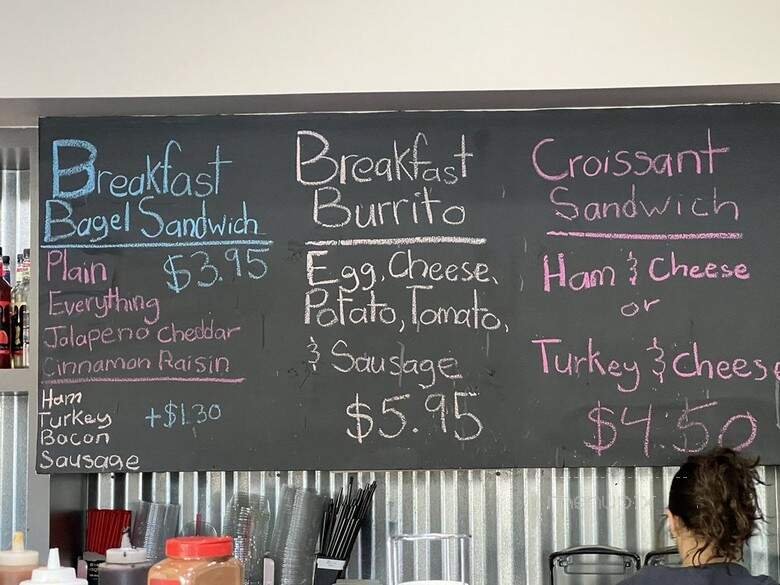 Breakfast
Bagel Sandwich
Plain $3.95
Everything
Jalapeno Cheddar
Cinnamon Raisin
Ham
Turkey +$1.30
Bacon
Sausage
Breakfast
Burrito
Egg, Cheese,
Potato, Tomato,
& Sausage
$5.95
Croissant
Sandwich
Ham & Cheese
or
Turkey & Cheese
$4.50